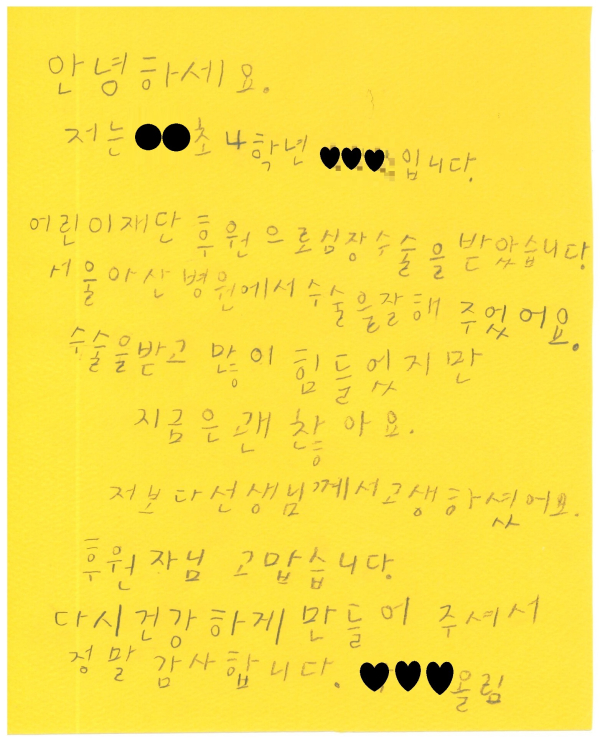 안녕하세요.
저는 ●●초 4학년 ♥♥♥입니다.
어린이재단 후원으로심장수술을 받았습니다
서울아산 병원에서 수술을잘해 주었어요.
수술을받고 많이 힘들었지만
지금은 괜찮아요.
저보다선생님께서고생하셨어요.
후원자님 고맙습니다.
다시건강하게 만들어 주셔서
정말 감사합니다. ♥♥♥올림